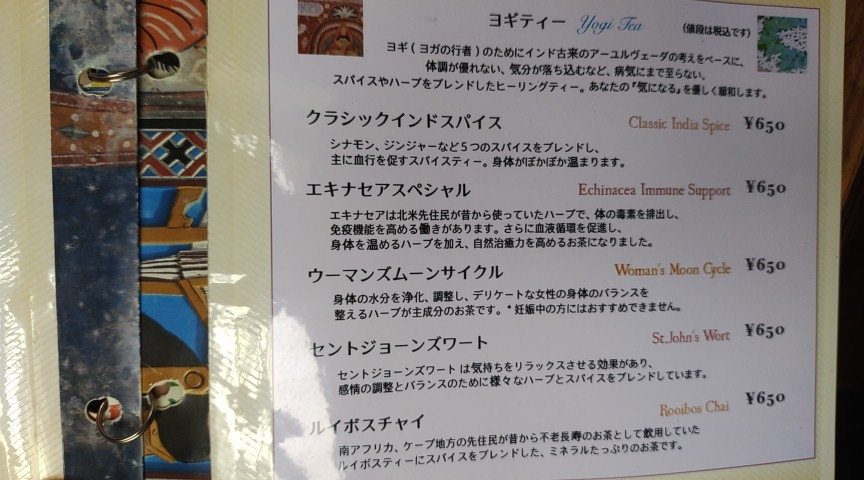 ヨギティー Yogi Tea (値段は税込です)
ヨギ(ヨガの行者)のためにインド古来のアーユルヴェーダの考えをベースに、
体調が優れない、気分が落ち込むなど、病気にまで至らない、
スパイスやハーブをブレンドしたヒーリングティー。あなたの『気になる』を優しく緩和します。
クラシックインドスパイス Classic India Spice ¥650
シナモン、ジンジャーなど5つのスパイスをブレンドし、
主に血行を促すスパイスティー。身体がぽかぽか温まります。
エキナセアスペシャル Echinacea Immune Support ¥650
エキナセアは北米先住民が昔から使っていたハーブで、体の毒素を排出し、
免疫機能を高める働きがあります。さらに血液循環を促進し、
身体を温めるハーブを加え、自然治癒力を高めるお茶になりました。
ウーマンズムーンサイクル Woman's Moon Cycle ¥650
身体の水分を浄化、調整し、デリケートな女性の身体のバランスを
整えるハーブが主成分のお茶です。*妊娠中の方にはおすすめできません。
セントジョーンズワート St.John's Wort ¥650
セントジョーンズワート は気持ちをリラックスさせる効果があり、
感情の調整とバランスのために様々なハーブとスパイスをブレンドしています。
ルイボスチャイ Rooibos Chai ¥650
南アフリカ、ケープ地方の先住民が昔から不老長寿のお茶として飲用していた
ルイボスティーにスパイスをブレンドした、ミネラルたっぷりのお茶です。